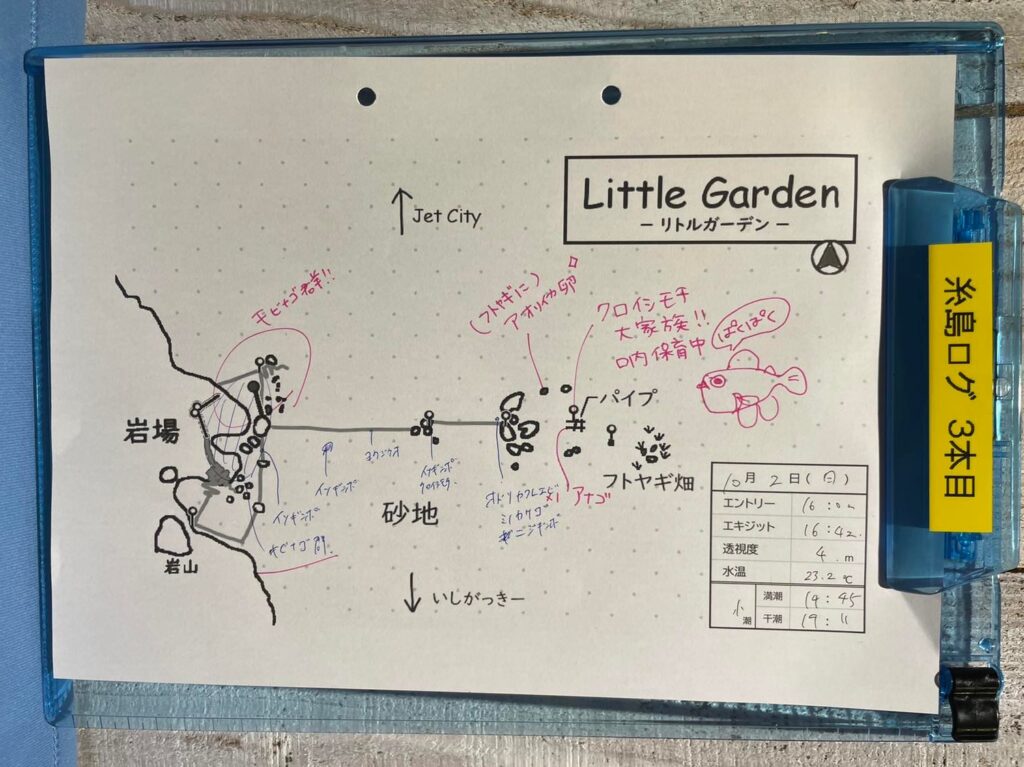 Little Garden
－リトルガーデン－
Jet City
キビナゴ群!!
(フトヤギに)
アオリイカ卵
クロイシモチ
大家族!!
口内保育中
ぱくぱく
パイプ
岩場
ヨウジウオ
イソギンポ
イソギンポ
イソギンポ
オドリカクレエビ
ミノカサゴ
ニジギンポ
アナゴ
フトヤギ畑
砂地
キビナゴ群
岩山
いしがっきー
10月2日(日)
エントリー 16:00
エキジット 16:42
透視度 4.m
水温 23.2℃
小潮
満潮 14:45
干潮 19:11
糸島ログ 3本目